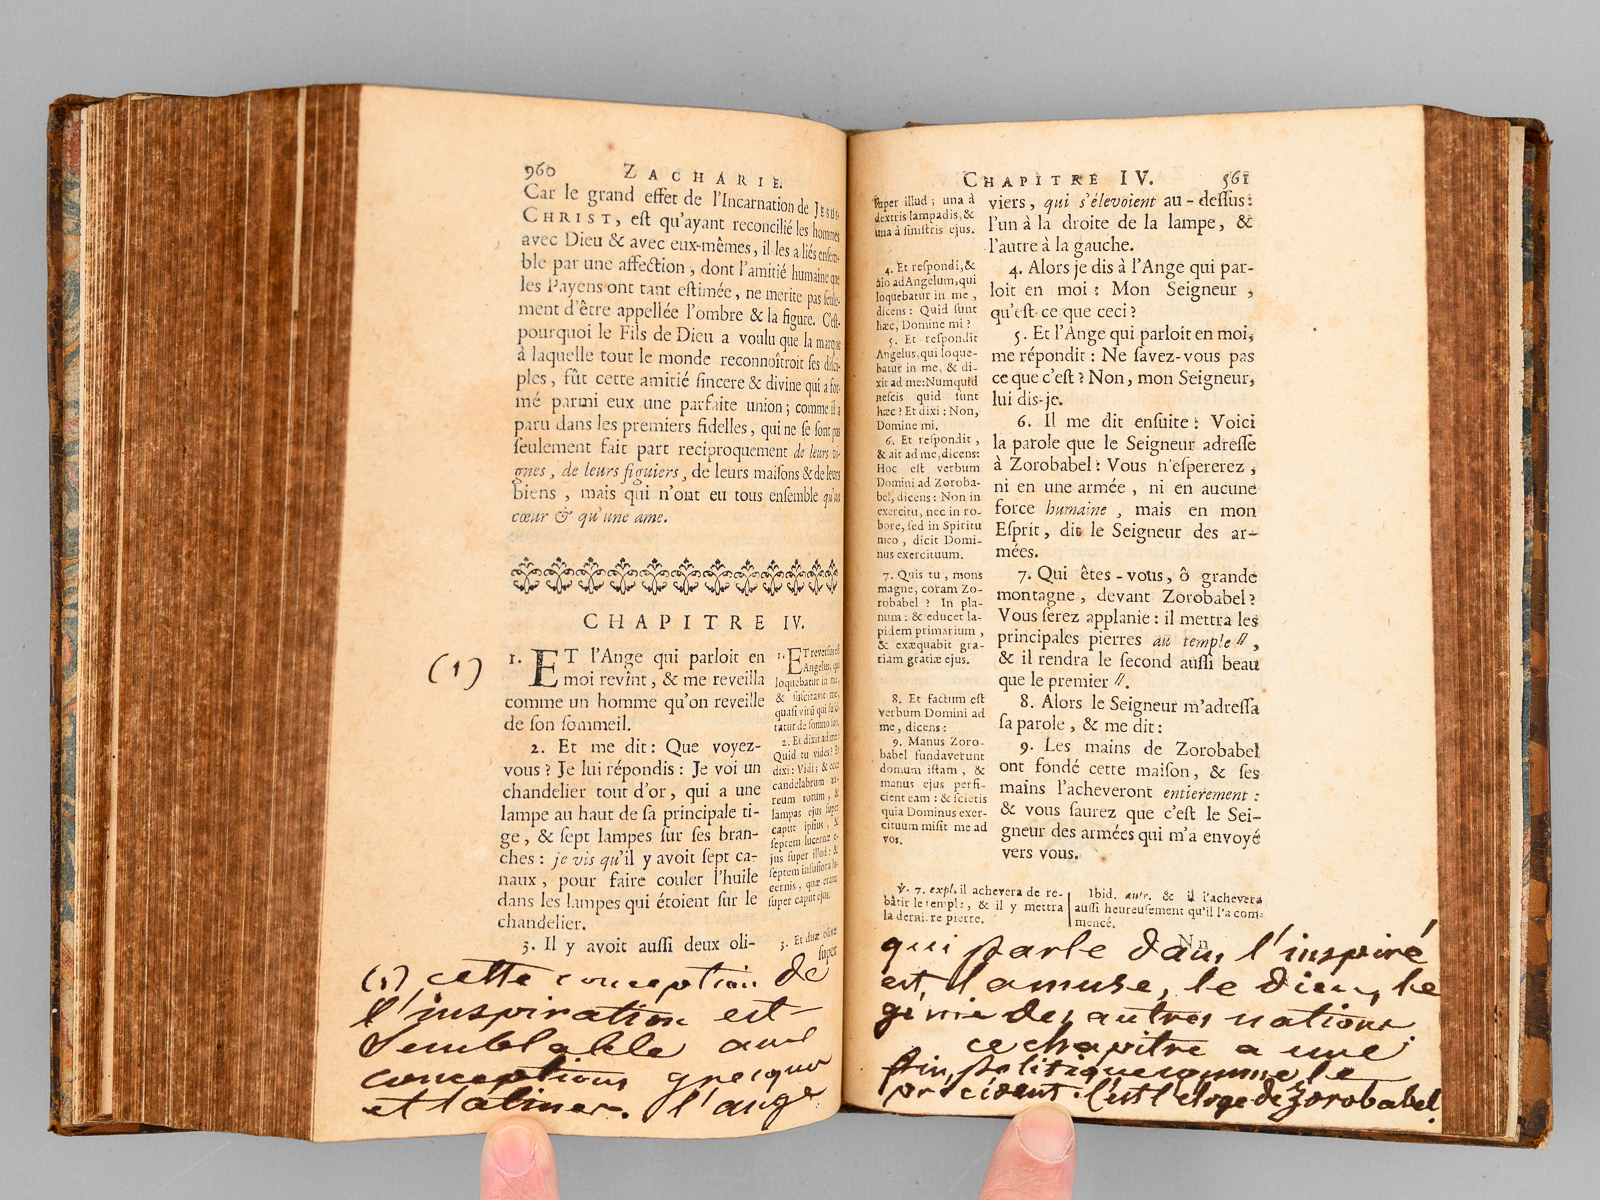 960 ZACHARIE.
Car le grand effet de l'Incarnation de JESUS-
CHRIST, eſt qu'ayant reconcilié les hommes
avec Dieu & avec eux-mêmes, il les a liés enſem-
ble par une affection, dont l'amitié humaine que
les Payens ont tant eſtimée, ne merite pas ſeule-
ment d'être appellée l'ombre & la figure. C'eſt-
pourquoi le Fils de Dieu a voulu que la marque
à laquelle tout le monde reconnoîtroit ſes diſci-
ples, fût cette amitié ſincere & divine qui a for-
mé parmi eux une parfaite union; comme il a
paru dans les premiers fidelles, qui ne ſe ſont pas
ſeulement fait part reciproquement de leurs vi-
gnes, de leurs figuiers, de leurs maiſons & de leurs
biens, mais qui n'ont eu tous enſemble qu'un
cœur & qu'une ame.
CHAPITRE IV.
(1)
1. ET l'Ange qui parloit en
moi revint, & me reveilla
comme un homme qu'on reveille
de ſon ſommeil.
2. Et me dit: Que voyez-
vous? Je lui répondis: Je voi un
chandelier tout d'or, qui a une
lampe au haut de ſa principale ti-
ge, & ſept lampes ſur ſes bran-
ches: je vis qu'il y avoit ſept ca-
naux, pour faire couler l'huile
dans les lampes qui étoient ſur le
chandelier.
3. Il y avoit auſſi deux oli-
1. ET reverſus eſt
Angelus, qui
loquebatur in me,
& ſuſcitavit me,
quaſi virū qui ſuſci-
tatur de ſomno ſuo.
2. Et dixit ad me:
Quid tu vides? Et
dixi: Vidi; & ecce
candelabrum au-
reum totum, &
lampas ejus ſuper
caput ipſius, &
ſeptem lucernæ e-
jus ſuper illud: &
ſeptem infuſoria lu-
cernis, quæ erant
ſuper caput ejus.
3. Et duæ olivæ
ſuper
(1) cette conception de
l'inspiration est
semblable aux
conceptions grecques
et latines. l'ange
CHAPITRE IV. 561
ſuper illud; una à
dextris lampadis, &
una à ſiniſtris ejus.
4. Et reſpondi, &
aio ad Angelum, qui
loquebatur in me,
dicens: Quid ſunt
hæc, Domine mi?
5. Et reſpondit
Angelus, qui loque-
batur in me, & di-
xit ad me: Numquid
neſcis quid ſunt
hæc? Et dixi: Non,
Domine mi.
6. Et reſpondit,
& ait ad me, dicens:
Hoc eſt verbum
Domini ad Zoroba-
bel, dicens: Non in
exercitu, nec in ro-
bore, ſed in Spiritu
meo, dicit Domi-
nus exercituum.
7. Quis tu, mons
magne, coram Zo-
robabel? In pla-
num: & educet la-
pidem primarium,
& exæquabit gra-
tiam gratiæ ejus.
8. Et factum eſt
verbum Domini ad
me, dicens:
9. Manus Zoro-
babel fundaverunt
domum iſtam, &
manus ejus perfi-
cient eam: & ſcietis
quia Dominus exer-
cituum miſit me ad
vos.
viers, qui s'élevoient au-deſſus:
l'un à la droite de la lampe, &
l'autre à la gauche.
4. Alors je dis à l'Ange qui par-
loit en moi: Mon Seigneur,
qu'eſt-ce que ceci?
5. Et l'Ange qui parloit en moi,
me répondit: Ne ſavez-vous pas
ce que c'eſt? Non, mon Seigneur,
lui dis-je.
6. Il me dit enſuite: Voici
la parole que le Seigneur adreſſe
à Zorobabel: Vous n'eſpererez,
ni en une armée, ni en aucune
force humaine, mais en mon
Eſprit, dit le Seigneur des ar-
mées.
7. Qui êtes-vous, ô grande
montagne, devant Zorobabel?
Vous ſerez applanie: il mettra les
principales pierres au temple //,
& il rendra le ſecond auſſi beau
que le premier //.
8. Alors le Seigneur m'adreſſa
ſa parole, & me dit:
9. Les mains de Zorobabel
ont fondé cette maiſon, & ſes
mains l'acheveront entierement:
& vous ſaurez que c'eſt le Sei-
gneur des armées qui m'a envoyé
vers vous.
℣. 7. expl. il achevera de re-
bâtir le temple, & il y mettra
la derniere pierre.
Ibid. autr. & il l'achevera
auſſi heureuſement qu'il l'a com-
mencé.
Nn
qui parle dans l'inspiré
est la muse, le dieu, le
génie des autres nations
ce chapitre a une
fin politique comme le
précédent. c'est l'eloge de Zorobabel.